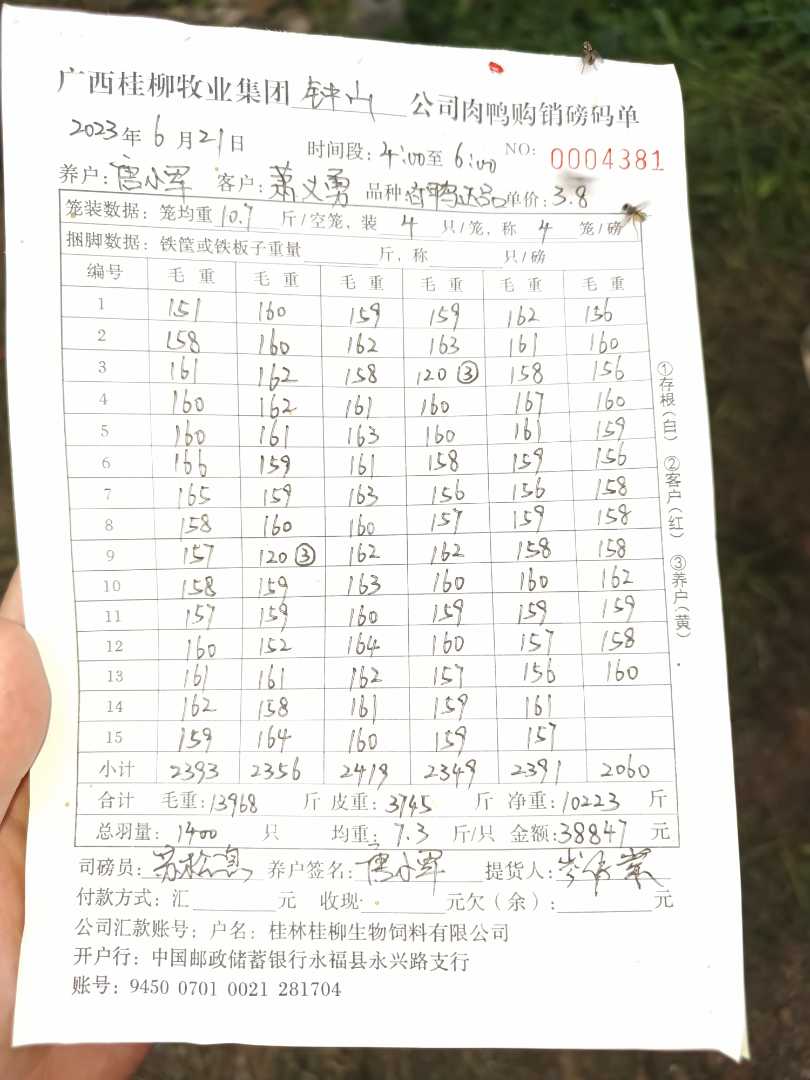 广西桂柳牧业集团 钟山 公司肉鸭购销磅码单
2023年6月21日 时间段:4:00至6:00 NO: 0004381
养户:唐小军 客户:萧义勇 品种: 单价:3.8
笼装数据:笼均重10.7斤/空笼,装4只/笼,称4笼/磅
捆脚数据:铁筐或铁板子重量 斤,称 只/磅
编号 毛重 毛重 毛重 毛重 毛重 毛重
1 151 160 159 159 162 156
2 158 160 162 163 161 160
3 161 162 158 120③ 158 156
4 160 162 161 160 167 160
5 160 161 163 160 161 159
6 166 159 161 158 159 156
7 165 159 163 156 156 158
8 158 160 160 157 159 158
9 157 120③ 162 162 158 158
10 158 159 163 160 160 162
11 157 159 160 159 159 159
12 160 152 164 160 157 158
13 161 161 162 157 156 160
14 162 158 161 159 161
15 159 164 160 159 157
小计 2393 2356 2419 2349 2391 2060
合计 毛重:13968斤 皮重:3745斤 净重:10223斤
总羽量:1400只 均重:7.3斤/只 金额:38847元
司磅员: 养户签名:唐小军 提货人:
付款方式:汇 元 收现 元欠(余): 元
公司汇款账号:户名:桂林桂柳生物饲料有限公司
开户行:中国邮政储蓄银行永福县永兴路支行
账号:9450 0701 0021 281704
①存根(白) ②客户(红) ③养户(黄)